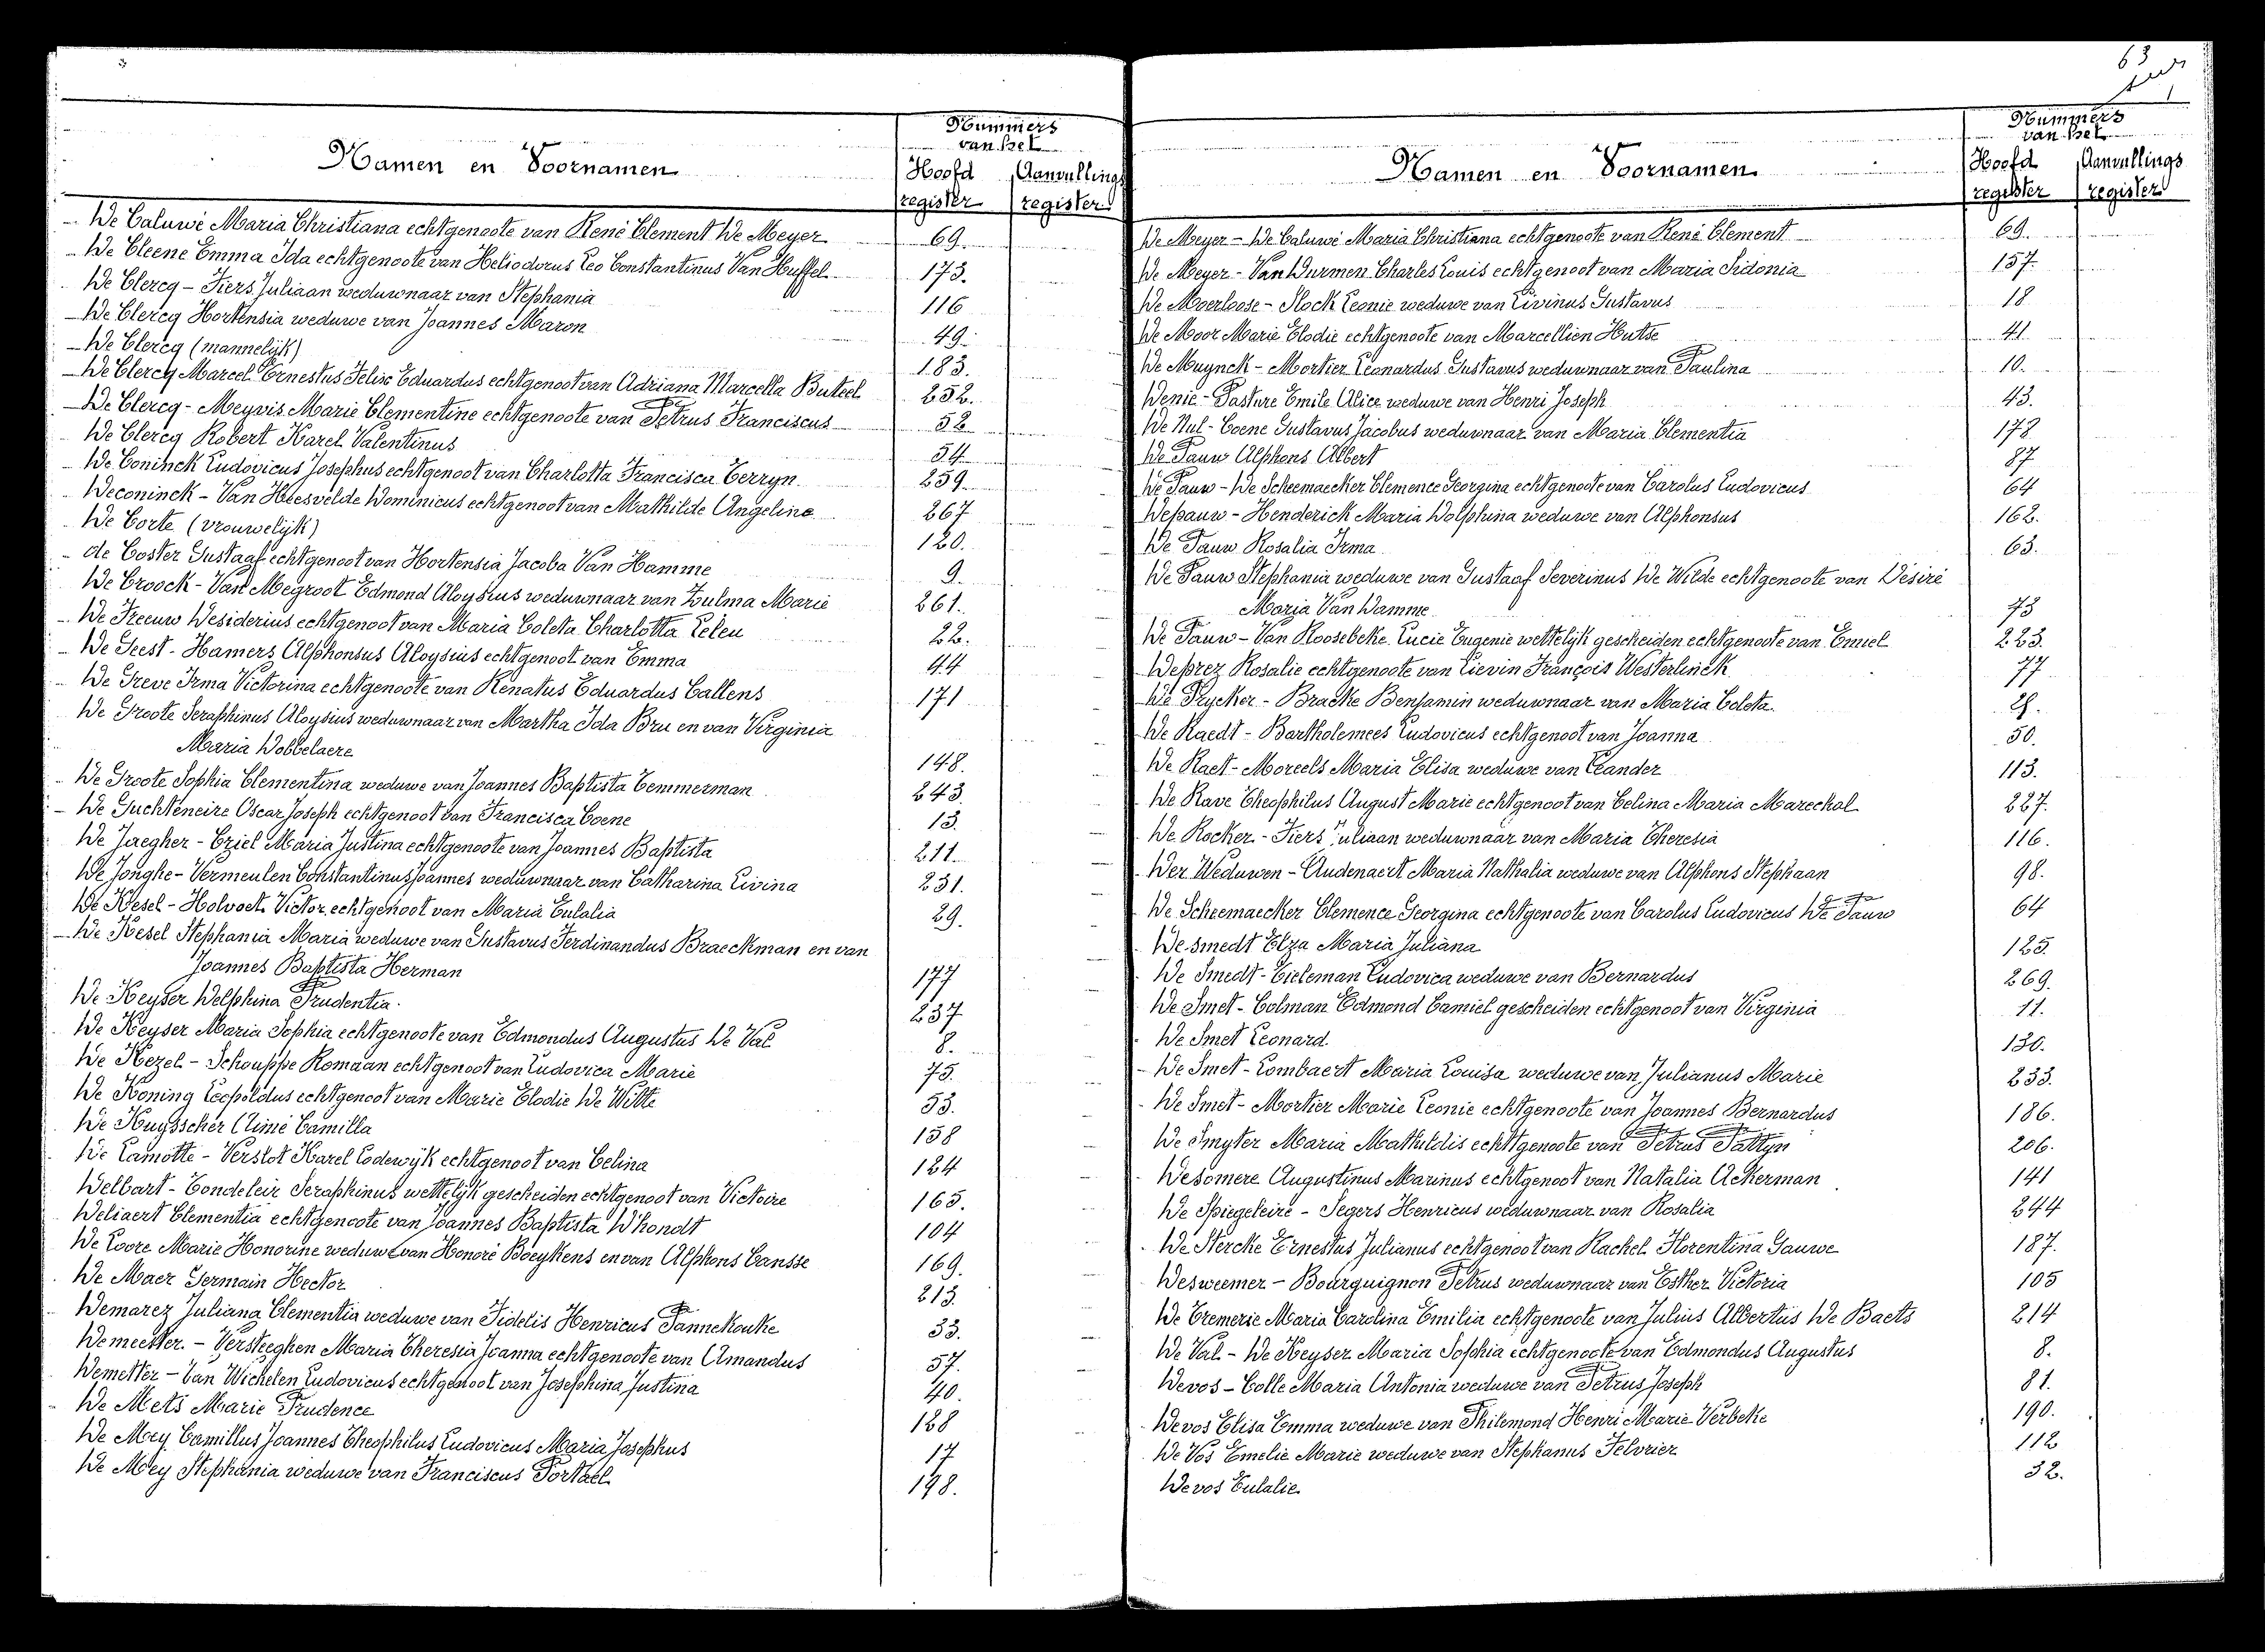 Nummers
van het
Namen en Voornamen
Hoofd Aanvullings
register register
De Caluwé Maria Christiana echtgenoote van René Clement De Meyer 69.
De Cleene Emma Ida echtgenoote van Heliodorus Leo Constantinus Van Huffel 173.
De Clercq - Fiers Juliaan weduwnaar van Stephania 116
De Clercq Hortensia weduwe van Joannes Maron 49.
De Clercq (mannelijk) 183.
De Clercq Marcel Ernestus Felix Eduardus echtgenoot van Adriana Marcella Buteel 252.
De Clercq - Meyvis Marie Clementine echtgenoote van Petrus Franciscus 52
De Clercq Robert Karel Valentinus 54
De Coninck Ludovicus Josephus echtgenoot van Charlotta Francisca Terryn 259
Deconinck - Van Heesvelde Dominicus echtgenoot van Mathilde Angeline 267
De Corte (vrouwelijk) 120.
de Coster Gustaaf echtgenoot van Hortensia Jacoba Van Hamme 9.
De Croock - Van Megroot Edmond Aloysius weduwnaar van Zulma Marie 261.
De Freeuw Desiderius echtgenoot van Maria Coleta Charlotta Leleu 22.
De Geest - Hamers Alphonsus Aloysius echtgenoot van Emma 44
De Greve Irma Victorina echtgenoote van Renatus Eduardus Callens 171
De Groote Seraphinus Aloysius weduwnaar van Martha Ida Bru en van Virginia
Maria Dobbelaere 148.
De Groote Sophia Clementina weduwe van Joannes Baptista Temmerman 243.
De Guchteneire Oscar Joseph echtgenoot van Francisca Coene 13.
De Jaegher - Criel Maria Justina echtgenoote van Joannes Baptista 211.
De Jonghe - Vermeulen Constantinus Joannes weduwnaar van Catharina Livina 231.
De Kesel - Holvoet Victor echtgenoot van Maria Eulalia 29.
De Kesel Stephania Maria weduwe van Gustavus Ferdinandus Braeckman en van
Joannes Baptista Herman 177
De Keyser Delphina Prudentia. 237
De Keyser Maria Sophia echtgenoote van Edmondus Augustus De Val 8.
De Kezel - Schouppe Romaan echtgenoot van Ludovica Marie 75.
De Koning Leopoldus echtgenoot van Marie Elodie De Witte 53.
De Kuysscher Aliné Camilla 158
De Lamotte - Verslot Karel Lodewijk echtgenoot van Celina 124
Delbart - Tondeleir Seraphinus wettelijk gescheiden echtgenoot van Victoire 165.
Deliaert Clementia echtgenoote van Joannes Baptista D'hondt 104
De Loore Marie Honorine weduwe van Honoré Boeykens en van Alphons Cansse 169.
De Maer Germain Hector 213.
Demarez Juliana Clementia weduwe van Fidelis Henricus Pannekouke 33.
Demeester - Versteeghen Maria Theresia Joanna echtgenoote van Amandus 57.
Demetter - Van Wichelen Ludovicus echtgenoot van Josephina Justina 40.
De Mets Marie Prudence 128
De Mey Camillus Joannes Theophilus Ludovicus Maria Josephus 17
De Mey Stephania weduwe van Franciscus Portael 198.
63
Nummers
van het
Namen en Voornamen
Hoofd Aanvullings
register register
De Meyer - De Caluwé Maria Christiana echtgenoote van René Clement 69.
De Meyer - Van Durmen Charles Louis echtgenoot van Maria Sidonia 157.
De Moerloose - Stock Leonie weduwe van Livinus Gustavus 18
De Moor Marie Elodie echtgenoote van Marcellien Hutse 41.
De Muynck - Mortier Leonardus Gustavus weduwnaar van Paulina 10.
Denie - Pasture Emile Alice weduwe van Henri Joseph 43.
De Nul - Coene Gustavus Jacobus weduwnaar van Maria Clementia 178
De Pauw Alphons Albert 87
De Pauw - De Scheemaecker Clemence Georgina echtgenoote van Carolus Ludovicus 64
Depauw - Henderick Maria Dolphina weduwe van Alphonsus 162.
De Pauw Rosalia Irma 63.
De Pauw Stephania weduwe van Gustaaf Severinus De Wilde echtgenoote van Désiré
Maria Van Damme 73
De Pauw - Van Roosebeke Lucie Eugenie wettelijk gescheiden echtgenoote van Emiel 223.
Deprez Rosalie echtgenoote van Lievin François Westerlinck 77
De Prycker - Bracke Benjamin weduwnaar van Maria Coleta.
De Raedt - Bartholomees Ludovicus echtgenoot van Joanna 50.
De Raet - Moreels Maria Elisa weduwe van Leander 113.
De Rave Theophilus August Marie echtgenoot van Celina Maria Marechal 227.
De Rocker - Fiers Juliaan weduwnaar van Maria Theresia 116.
Der Weduwen - Audenaert Maria Nathalia weduwe van Alphons Stephaan 98.
De Scheemaecker Clemence Georgina echtgenoote van Carolus Ludovicus De Pauw 64
De smedt Elza Maria Juliana 125.
De Smedt - Tieleman Ludovica weduwe van Bernardus 269.
De Smet - Colman Edmond Camiel gescheiden echtgenoot van Virginia 11.
De Smet Leonard. 130.
De Smet - Lombaert Maria Louisa weduwe van Julianus Marie 233.
De Smet - Mortier Marie Leonie echtgenoote van Joannes Bernardus 186.
De Smyter Maria Mathildis echtgenoote van Petrus Pattyn 206.
Desomere Augustinus Marinus echtgenoot van Natalia Ackerman 141
De Spiegeleire - Segers Henricus weduwnaar van Rosalia 244
De Stercke Ernestus Julianus echtgenoot van Rachel Florentina Gauwe 187.
Desweemer - Bourguignon Petrus weduwnaar van Esther Victoria 105
De Tremerie Maria Carolina Emilia echtgenoote van Julius Albertus De Baets 214
De Val - De Keyser Maria Sophia echtgenoote van Edmondus Augustus 8.
Devos - Colle Maria Antonia weduwe van Petrus Joseph 81.
Devos Elisa Emma weduwe van Philemond Henri Marie Verbeke 190.
De Vos Emelie Marie weduwe van Stephanus Felvrier 112
Devos Eulalie 32.